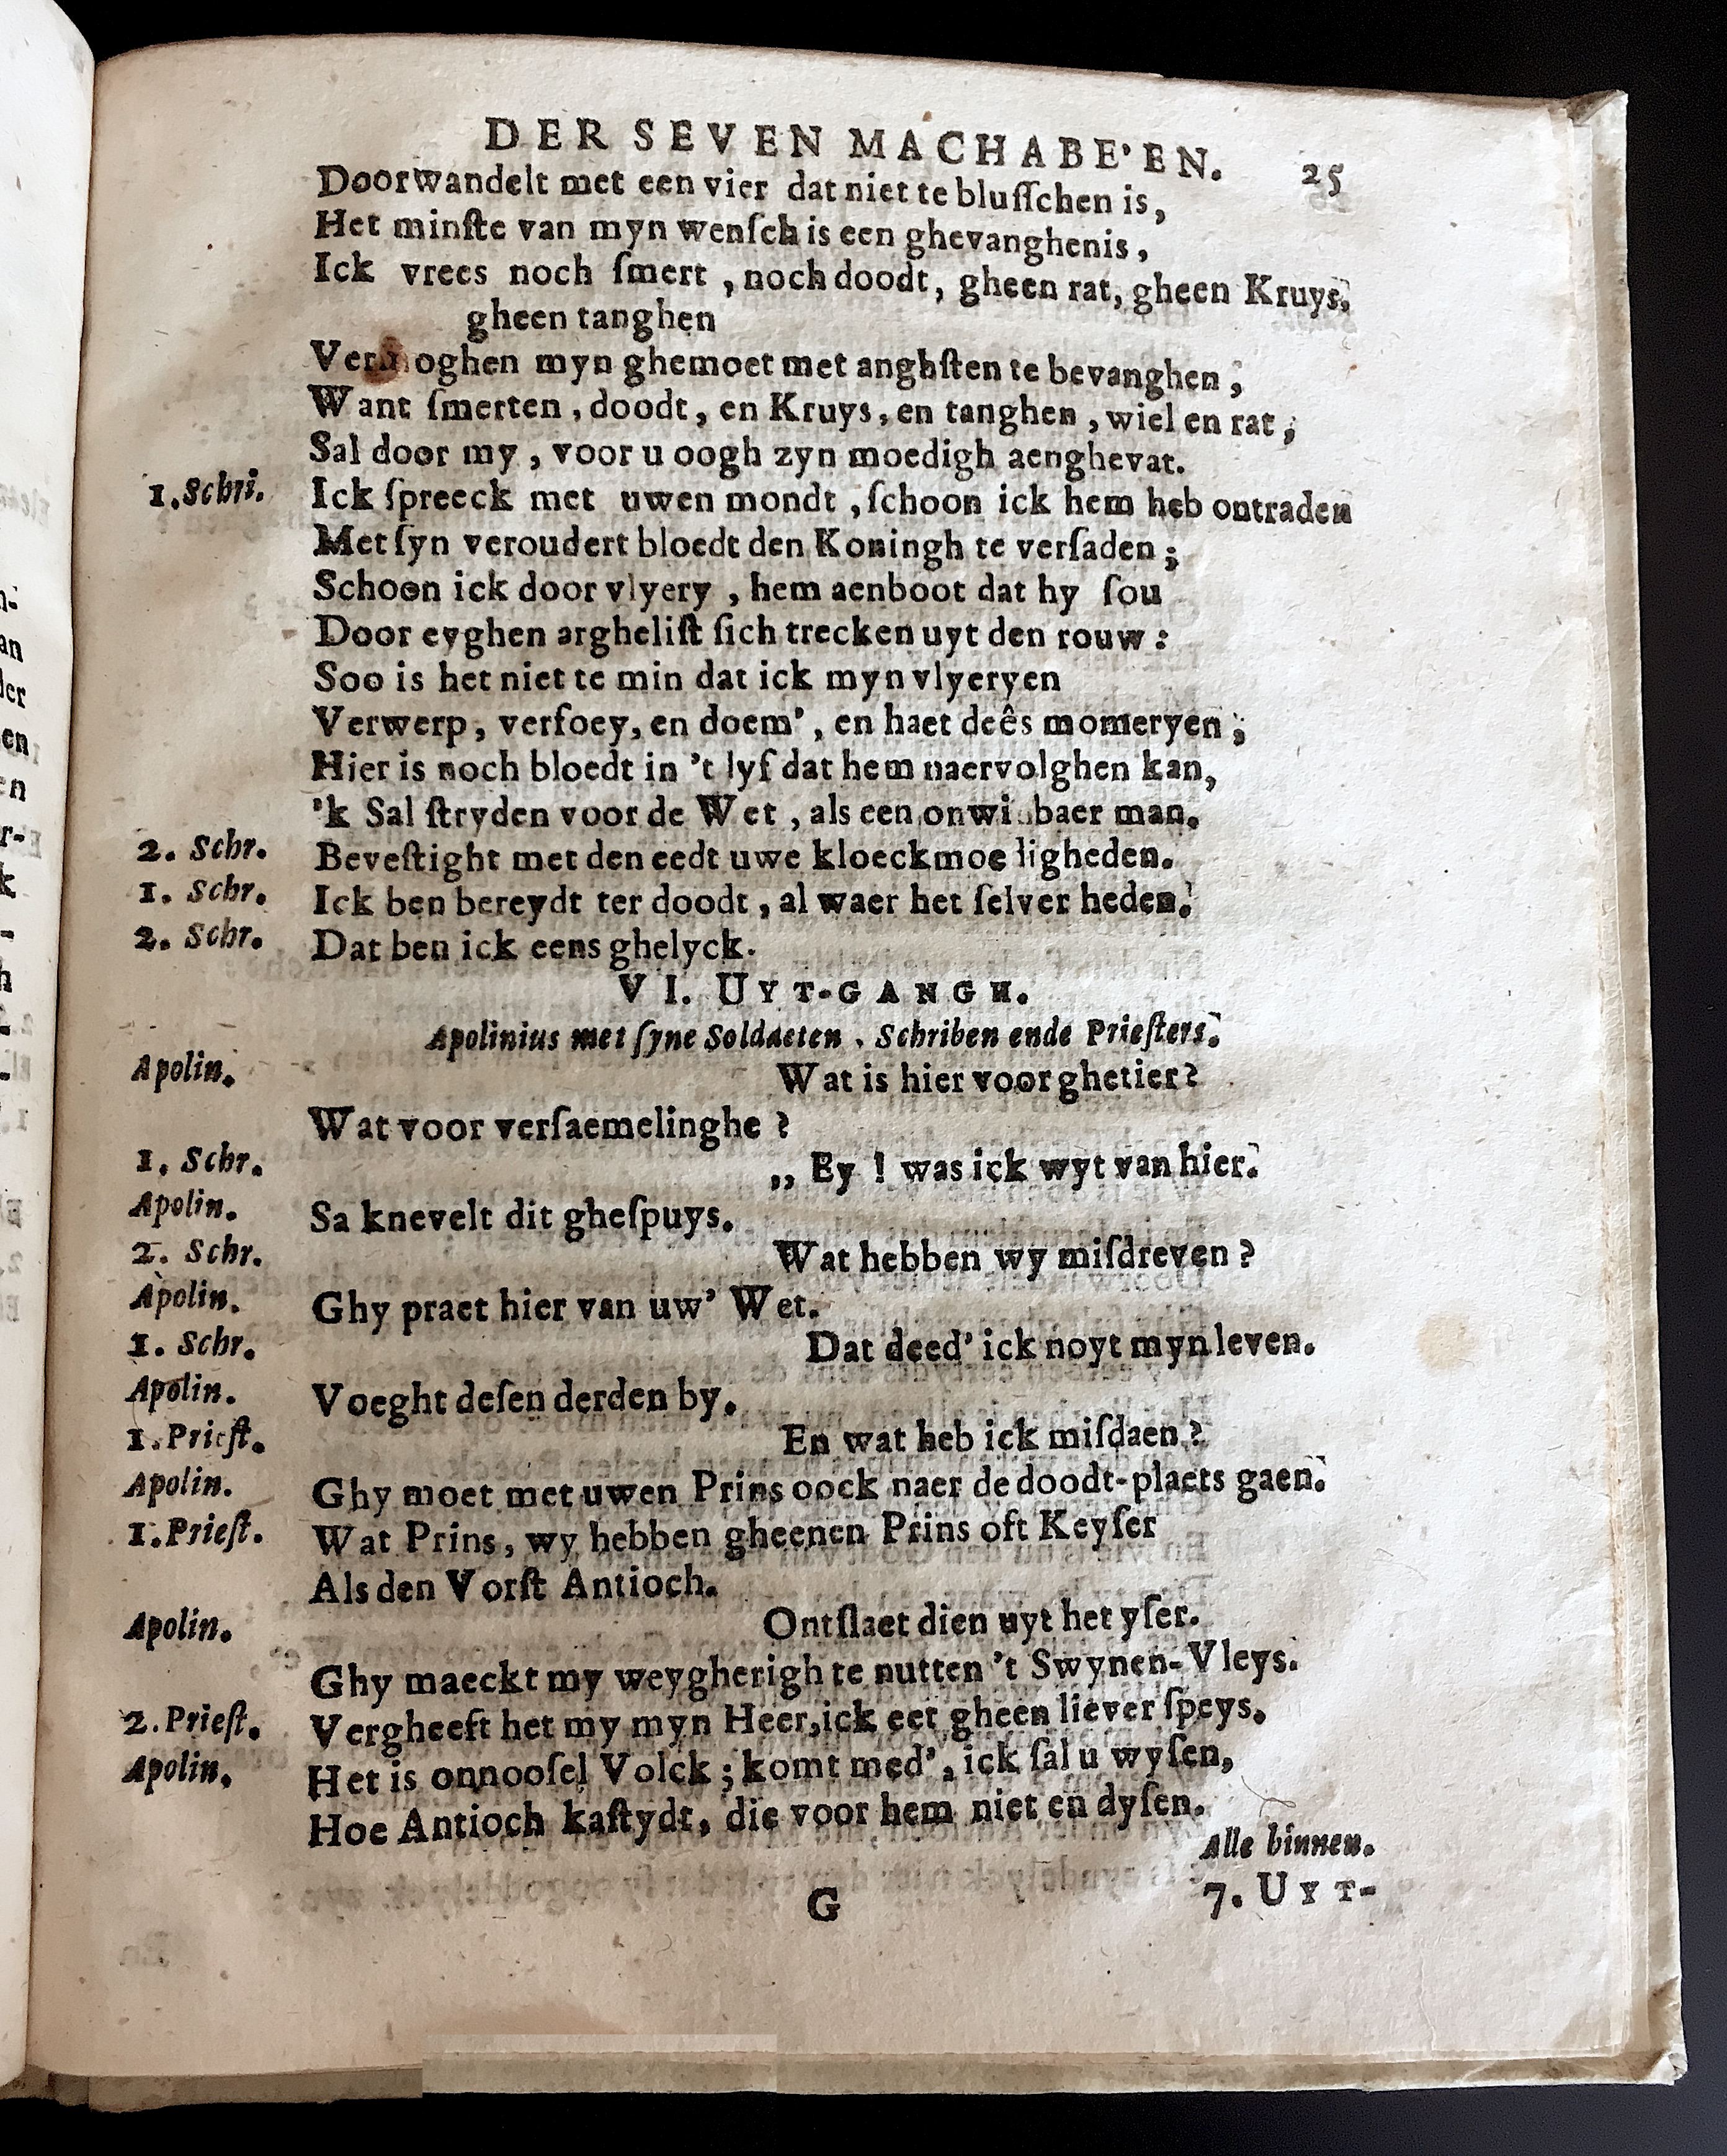 DER SEVEN MACHABE'EN. 25
Doorwandelt met een vier dat niet te bluſſchen is,
Het minſte van myn wenſch is een ghevanghenis,
Ick vrees noch ſmert, noch doodt, gheen rat, gheen Kruys,
gheen tanghen
Vermoghen myn ghemoet met anghſten te bevanghen,
Want ſmerten, doodt, en Kruys, en tanghen, wiel en rat,
Sal door my, voor u oogh zyn moedigh aenghevat.
1. Schri. Ick ſpreeck met uwen mondt, ſchoon ick hem heb ontraden
Met ſyn veroudert bloedt den Koningh te verſaden;
Schoon ick door vlyery, hem aenboot dat hy ſou
Door eyghen argheliſt ſich trecken uyt den rouw:
Soo is het niet te min dat ick myn vlyeryen
Verwerp, verfoey, en doem', en haet deês momeryen;
Hier is noch bloedt in 't lyf dat hem naervolghen kan,
'k Sal ſtryden voor de Wet, als een onwinbaer man.
2. Schr. Beveſtight met den eedt uwe kloeckmoedigheden.
1. Schr. Ick ben bereydt ter doodt, al waer het ſelver heden.
2. Schr. Dat ben ick eens ghelyck.
VI. UYT-GANGH.
Apolinius met ſyne Soldaeten, Schriben ende Prieſters.
Apolin. Wat is hier voor ghetier?
Wat voor verſaemelinghe?
1. Schr. ,, Ey! was ick wyt van hier.
Apolin. Sa knevelt dit gheſpuys.
2. Schr. Wat hebben wy miſdreven?
Apolin. Ghy praet hier van uw' Wet.
1. Schr. Dat deed' ick noyt myn leven.
Apolin. Voeght deſen derden by.
1. Prieſt. En wat heb ick miſdaen?
Apolin. Ghy moet met uwen Prins oock naer de doodt-plaets gaen.
1. Prieſt. Wat Prins, wy hebben gheenen Prins oft Keyſer
Als den Vorſt Antioch.
Apolin. Ontſlaet dien uyt het yſer.
Ghy maeckt my weygherigh te nutten 't Swynen-Vleys.
2. Prieſt. Vergheeft het my myn Heer, ick eet gheen liever ſpeys.
Apolin. Het is onnooſel Volck; komt med', ick ſal u wyſen,
Hoe Antioch kaſtydt, die voor hem niet en dyſen.
Alle binnen.
G 7. UYT-